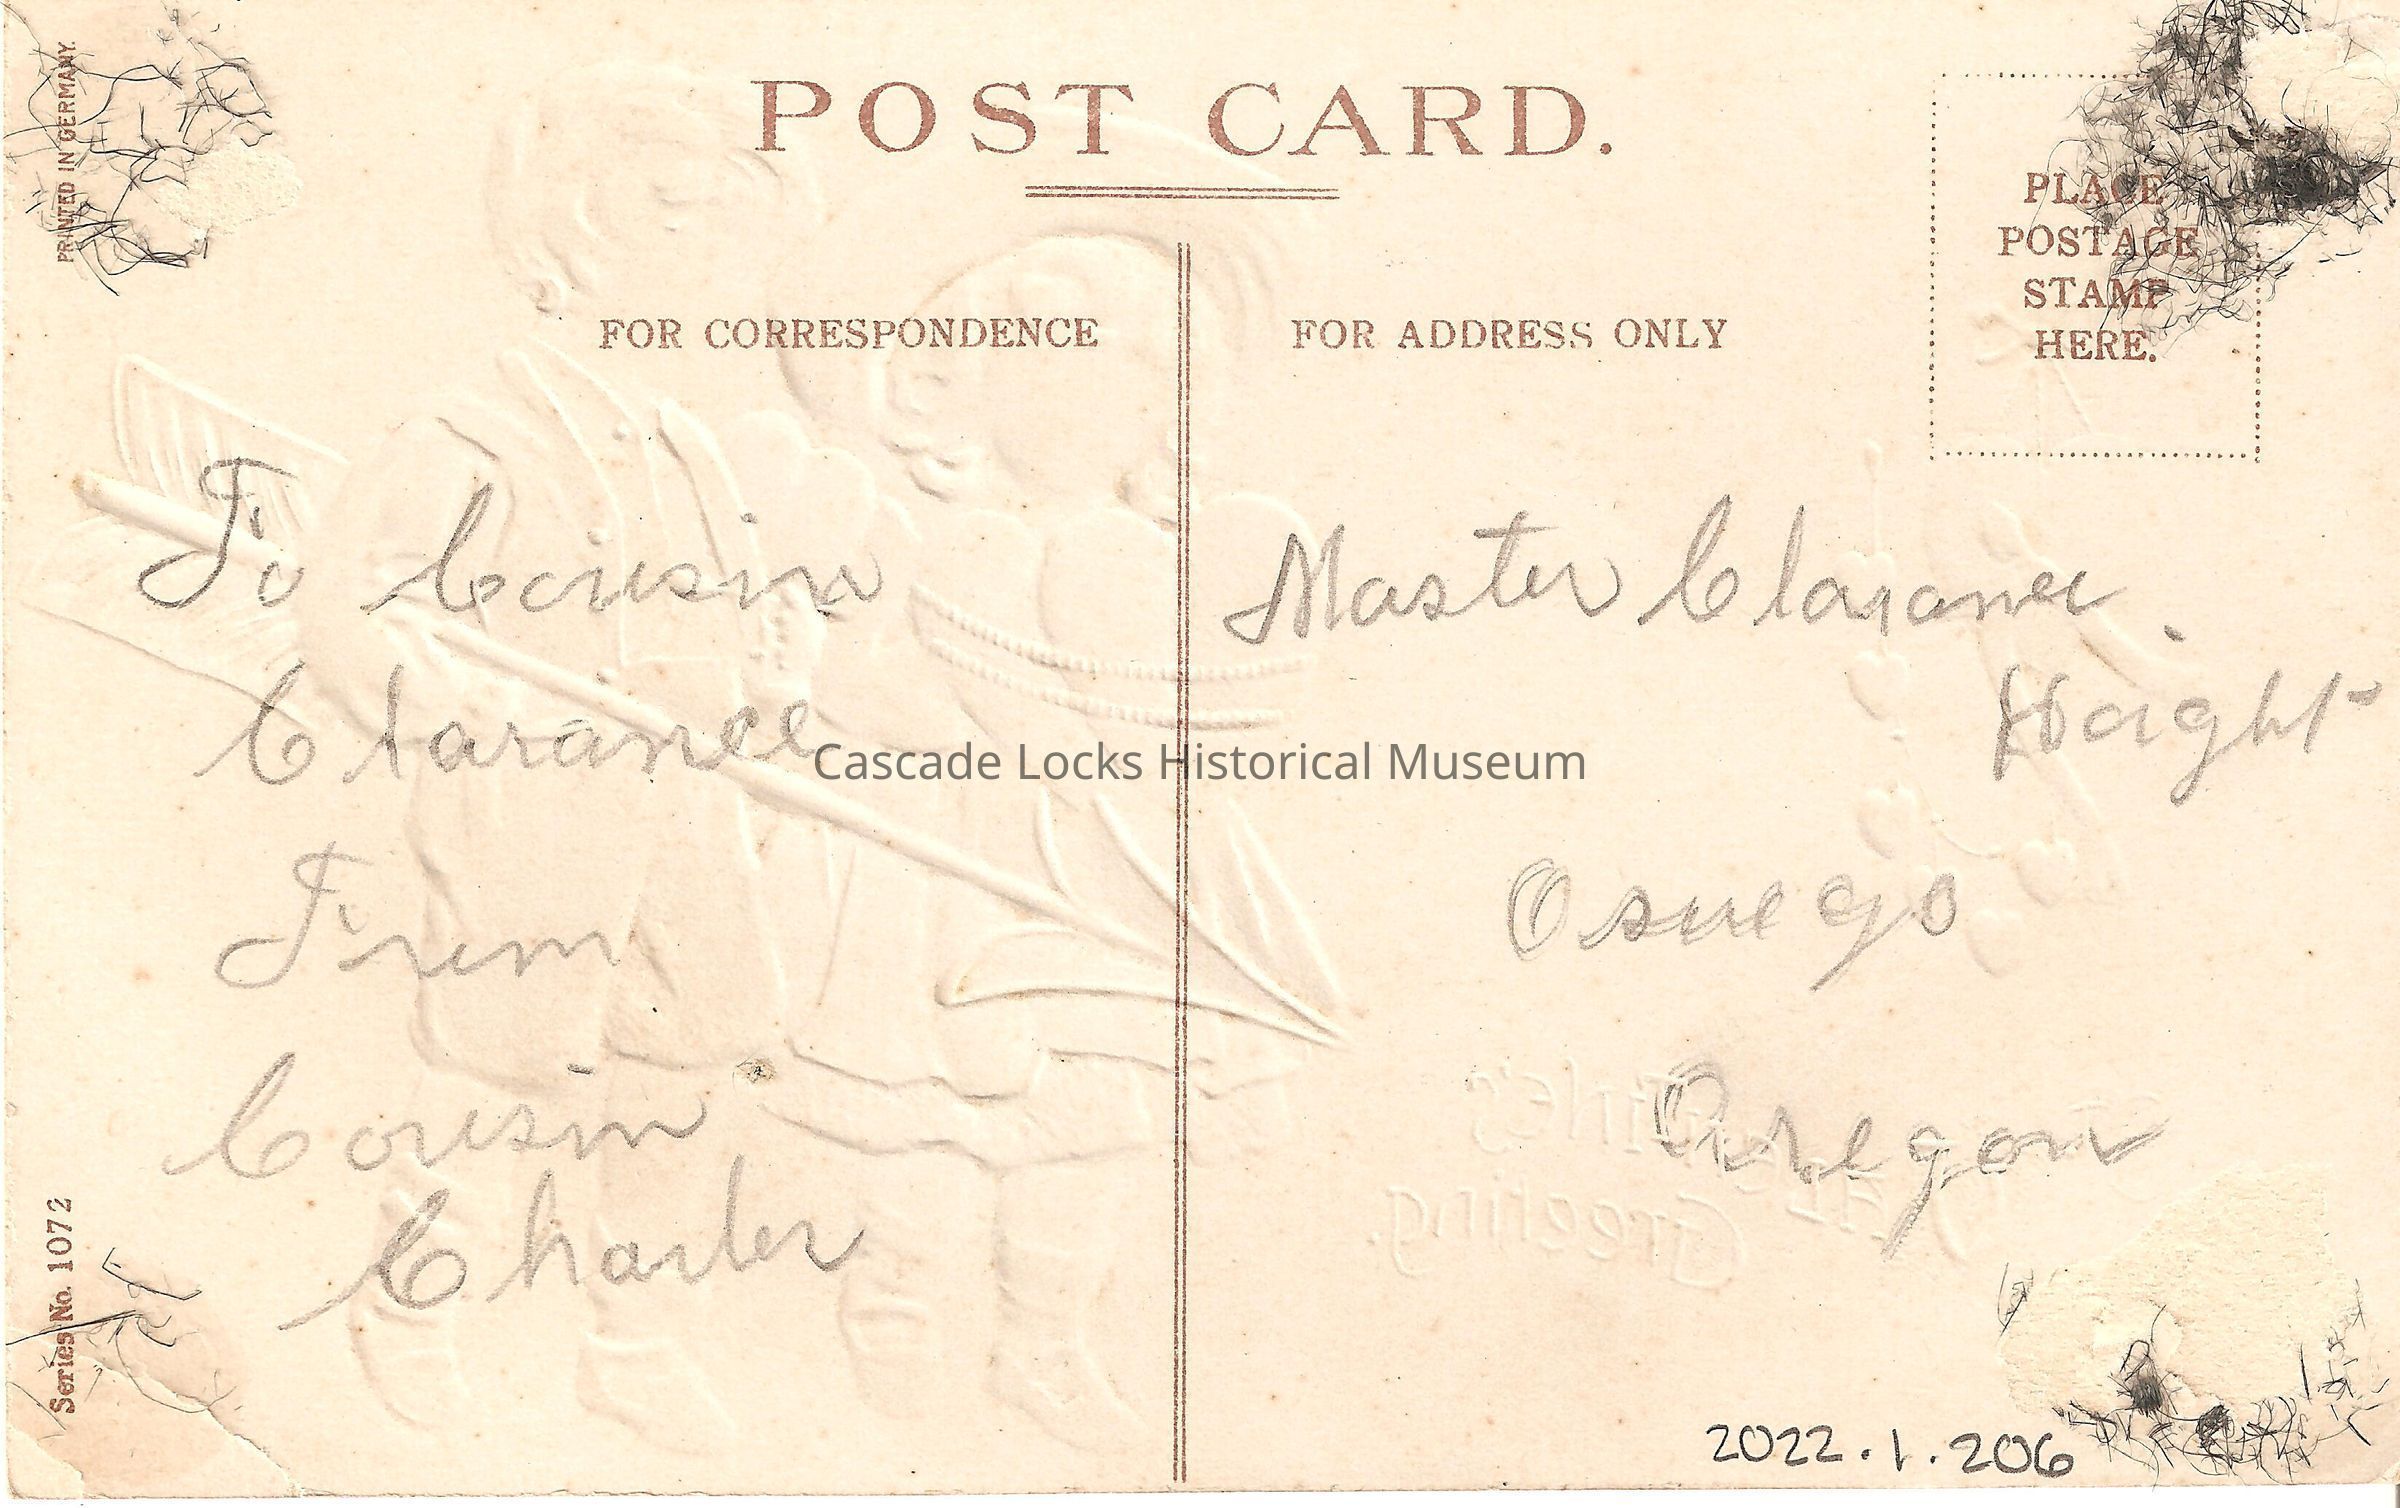 POST CARD.
PRINTED IN GERMANY.
PLACE
POSTAGE
STAMP
HERE.
FOR CORRESPONDENCE
FOR ADDRESS ONLY
To Cousin
Clarance
From
Cousin
Charler
Master Clarance
Haight
Oswego
Oregon
Cascade Locks Historical Museum
Greeting.
Series No. 1072
2022.1.206